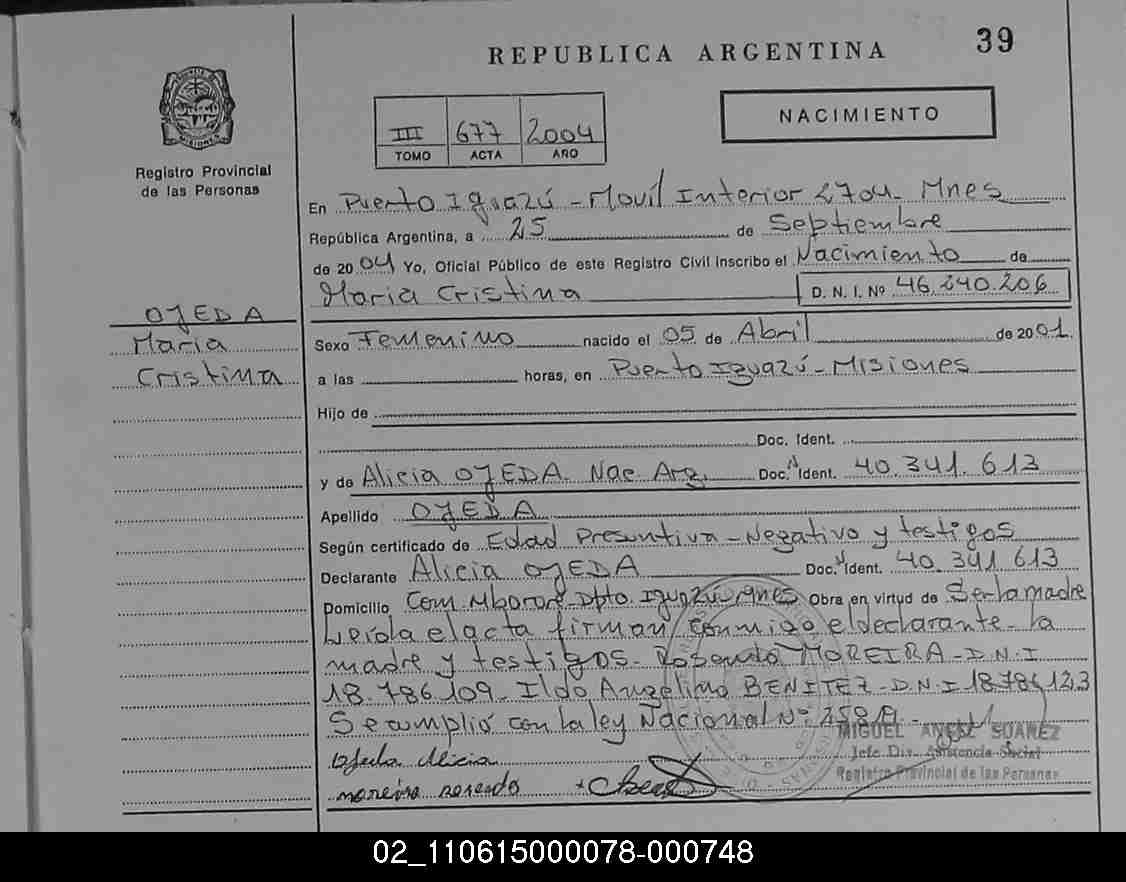 39
REPUBLICA ARGENTINA
NACIMIENTO
MISIONES
Registro Provincial
de las Personas
III 677 2004
TOMO ACTA AÑO
En Puerto Iguazú - Movil Interior 2704 Mnes
República Argentina, a 25 de Septiembre
de 2004 Yo, Oficial Público de este Registro Civil inscribo el Nacimiento de
Maria Cristina D. N. I. Nº 46.240.206
OJEDA
Maria
Cristina
Sexo Femenino nacido el 05 de Abril de 2001
a las horas, en Puerto Iguazú - Misiones
Hijo de
Doc. Ident.
y de Alicia OJEDA Nac Arg. Doc. Ident. 40.341.613
Apellido OJEDA
Según certificado de Edad Presuntiva - Negativo y testigos
Declarante Alicia OJEDA Doc. Ident. 40.341.613
Domicilio Com. Mbororé - Dpto. Iguazú Mnes Obra en virtud de Ser la madre
Leída el acta firman conmigo el declarante - la
madre y testigos - Rosendo MOREIRA - D.N.I
18.786.109 - Ildo Angelino BENITEZ - D.N.I 18.786.123
Se cumplió con la ley Nacional Nº
Ojeda Alicia
moreira rosendo
MIGUEL ANGEL SUAREZ
Jefe Div. Asistencia Social
Registro Provincial de las Personas
02_110615000078-000748